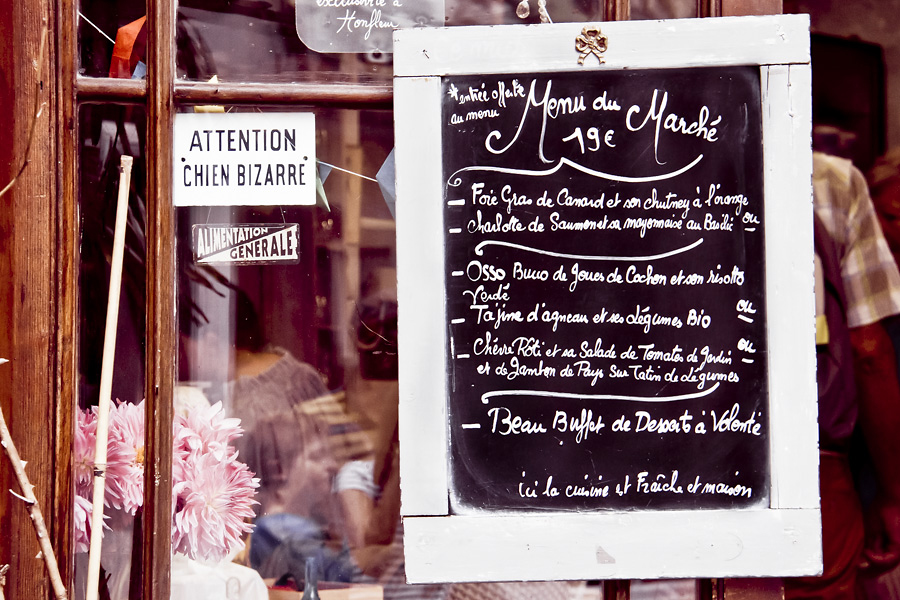 exclusivité à
Honfleur
ATTENTION
CHIEN BIZARRE
ALIMENTATION
GENERALE
*entrée offerte
au menu
Menu du Marché
19€
- Foie Gras de Canard et son chutney à l'orange
ou
- Charlotte de Saumon et sa mayonnaise au Basilic
- Osso Buco de Joues de Cochon et son risotto
Verdé
ou
- Tajine d'agneau et ses légumes Bio
ou
- Chèvre Rôti et sa Salade de Tomates de Jardin
et de Jambon de Pays Sur Tatin de légumes
- Beau Buffet de Desserts à Volonté
ici la cuisine est Fraîche et maison